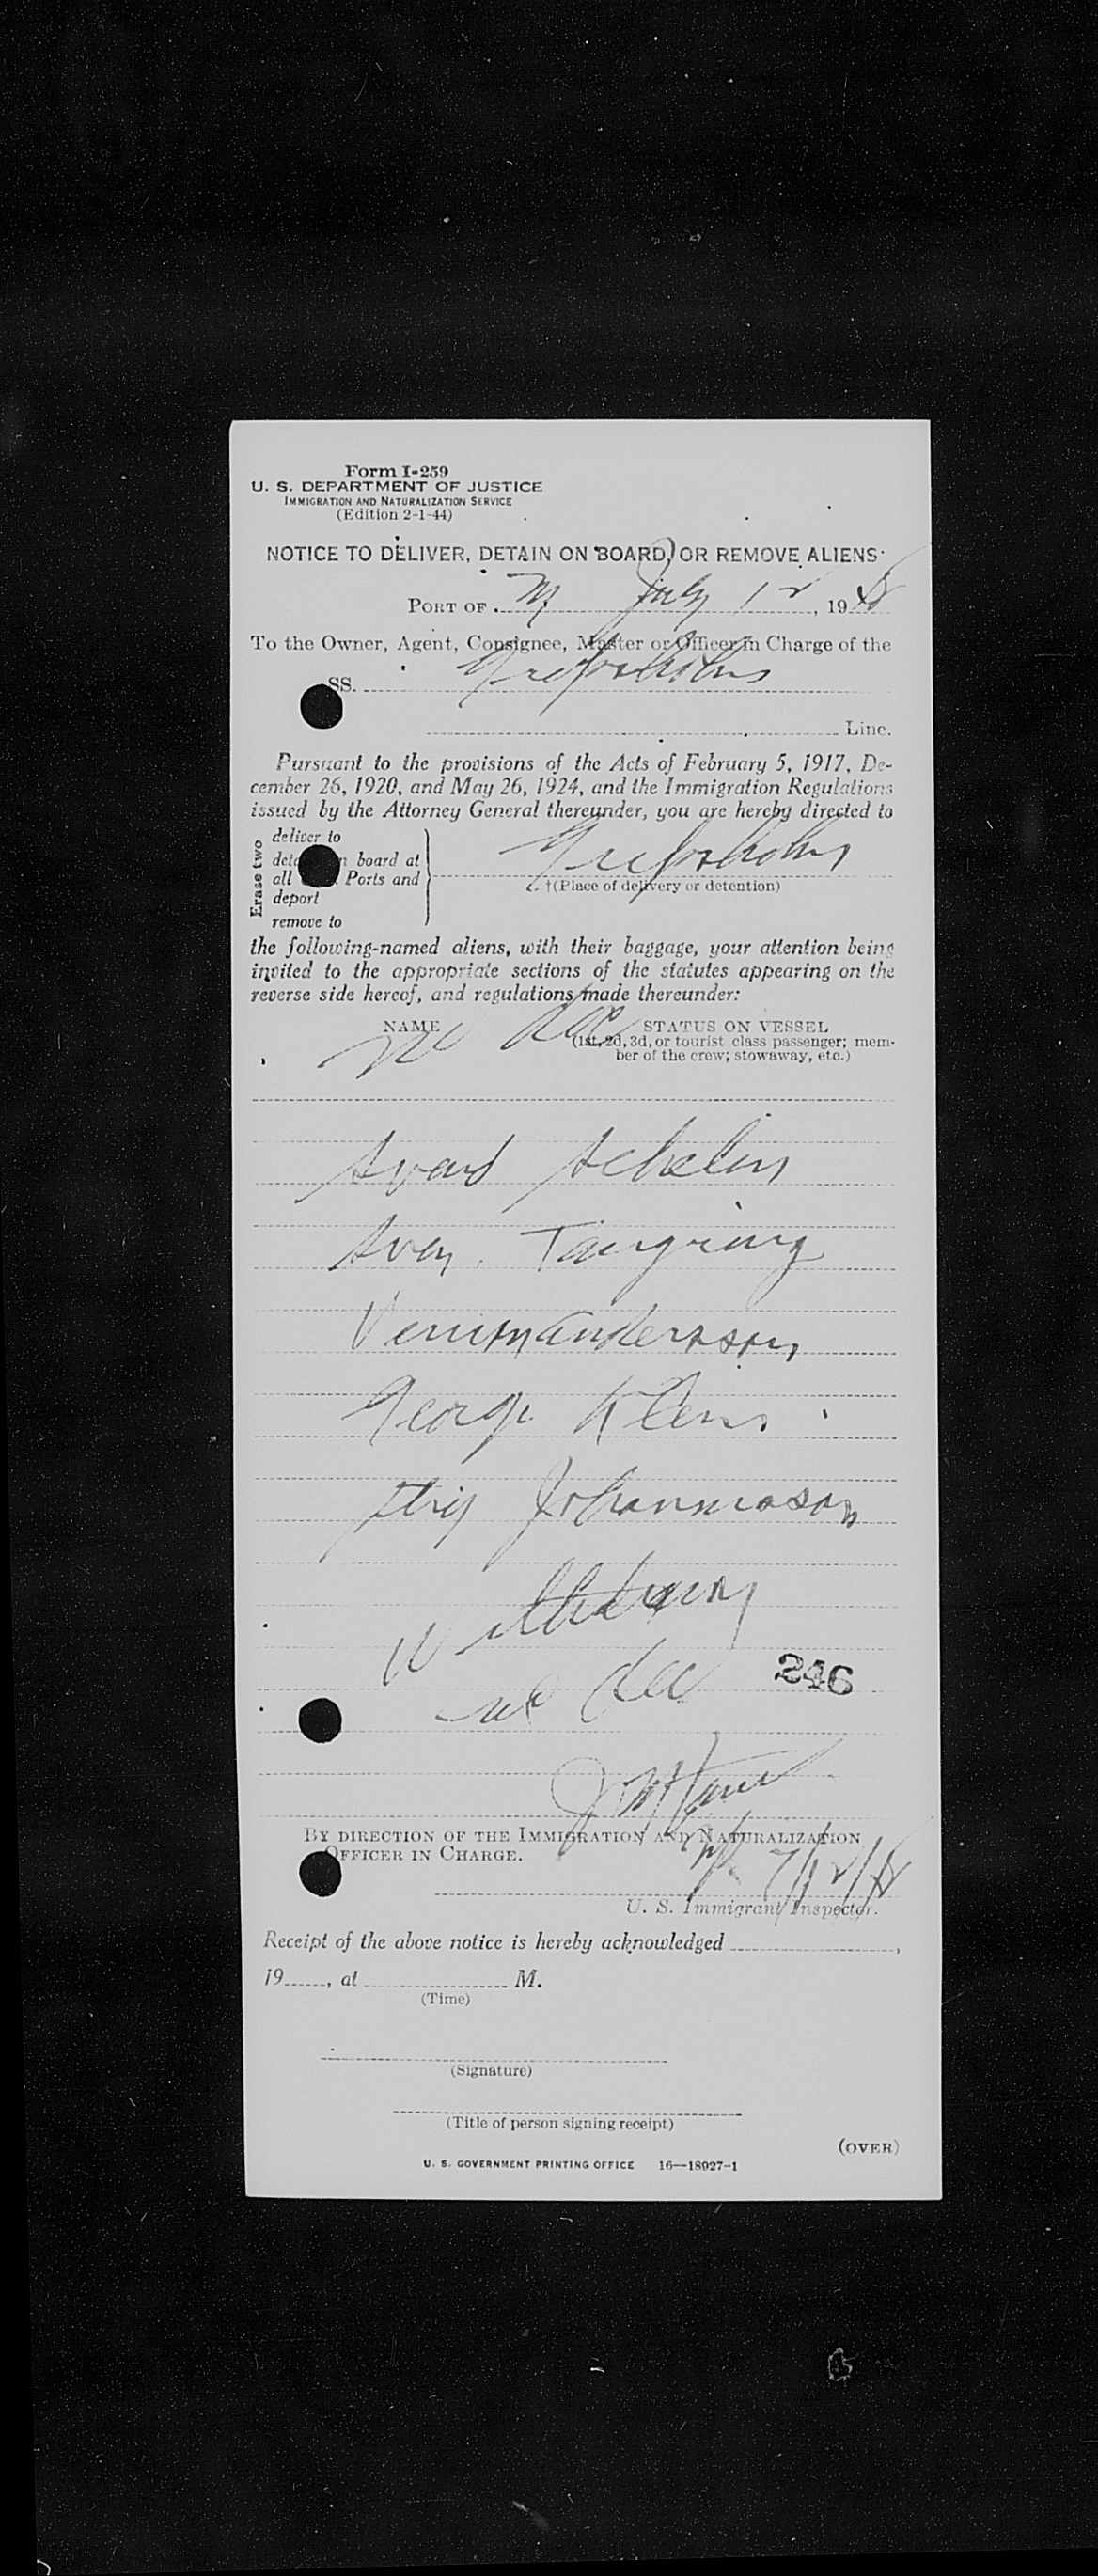 Form I-259
U. S. DEPARTMENT OF JUSTICE
IMMIGRATION AND NATURALIZATION SERVICE
(Edition 2-1-44)
NOTICE TO DELIVER, DETAIN ON BOARD, OR REMOVE ALIENS
PORT OF July 12, 1948
To the Owner, Agent, Consignee, Master or Officer in Charge of the
SS. Gripsholm
Line.
Pursuant to the provisions of the Acts of February 5, 1917, De-
cember 26, 1920, and May 26, 1924, and the Immigration Regulations
issued by the Attorney General thereunder, you are hereby directed to
Erase two
deliver to
board at
all Ports and
deport
remove to
Gripsholm
†(Place of delivery or detention)
the following-named aliens, with their baggage, your attention being
invited to the appropriate sections of the statutes appearing on the
reverse side hereof, and regulations made thereunder:
NAME STATUS ON VESSEL
(1st, 2d, 3d, or tourist class passenger; mem-
ber of the crew; stowaway, etc.)
no doc
Sven Tangring
Andersson
George
Stig Johannesson
no doc 246
BY DIRECTION OF THE IMMIGRATION AND NATURALIZATION
OFFICER IN CHARGE.
7/12/48
U. S. Immigrant Inspector.
Receipt of the above notice is hereby acknowledged ,
19 , at M.
(Time)
(Signature)
(Title of person signing receipt)
(OVER)
U. S. GOVERNMENT PRINTING OFFICE 16—18927-1